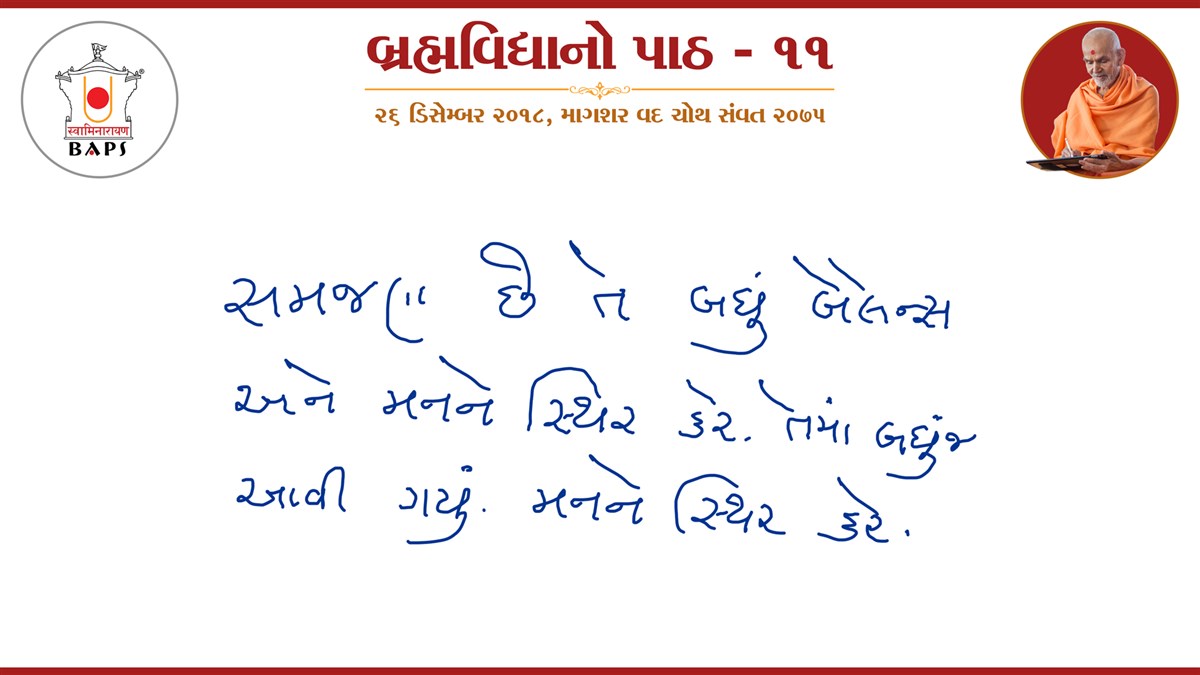 બ્રહ્મવિદ્યાનો પાઠ - ૧૧
૨૬ ડિસેમ્બર ૨૦૧૮, માગશર વદ ચોથ સંવત ૨૦૭૫
स्वामिनारायण
BAPS
સમજણ છે તે બધું બેલેન્સ
અને મનને સ્થિર કરે. તેમાં બધુંજ
આવી ગયું. મનને સ્થિર કરે.